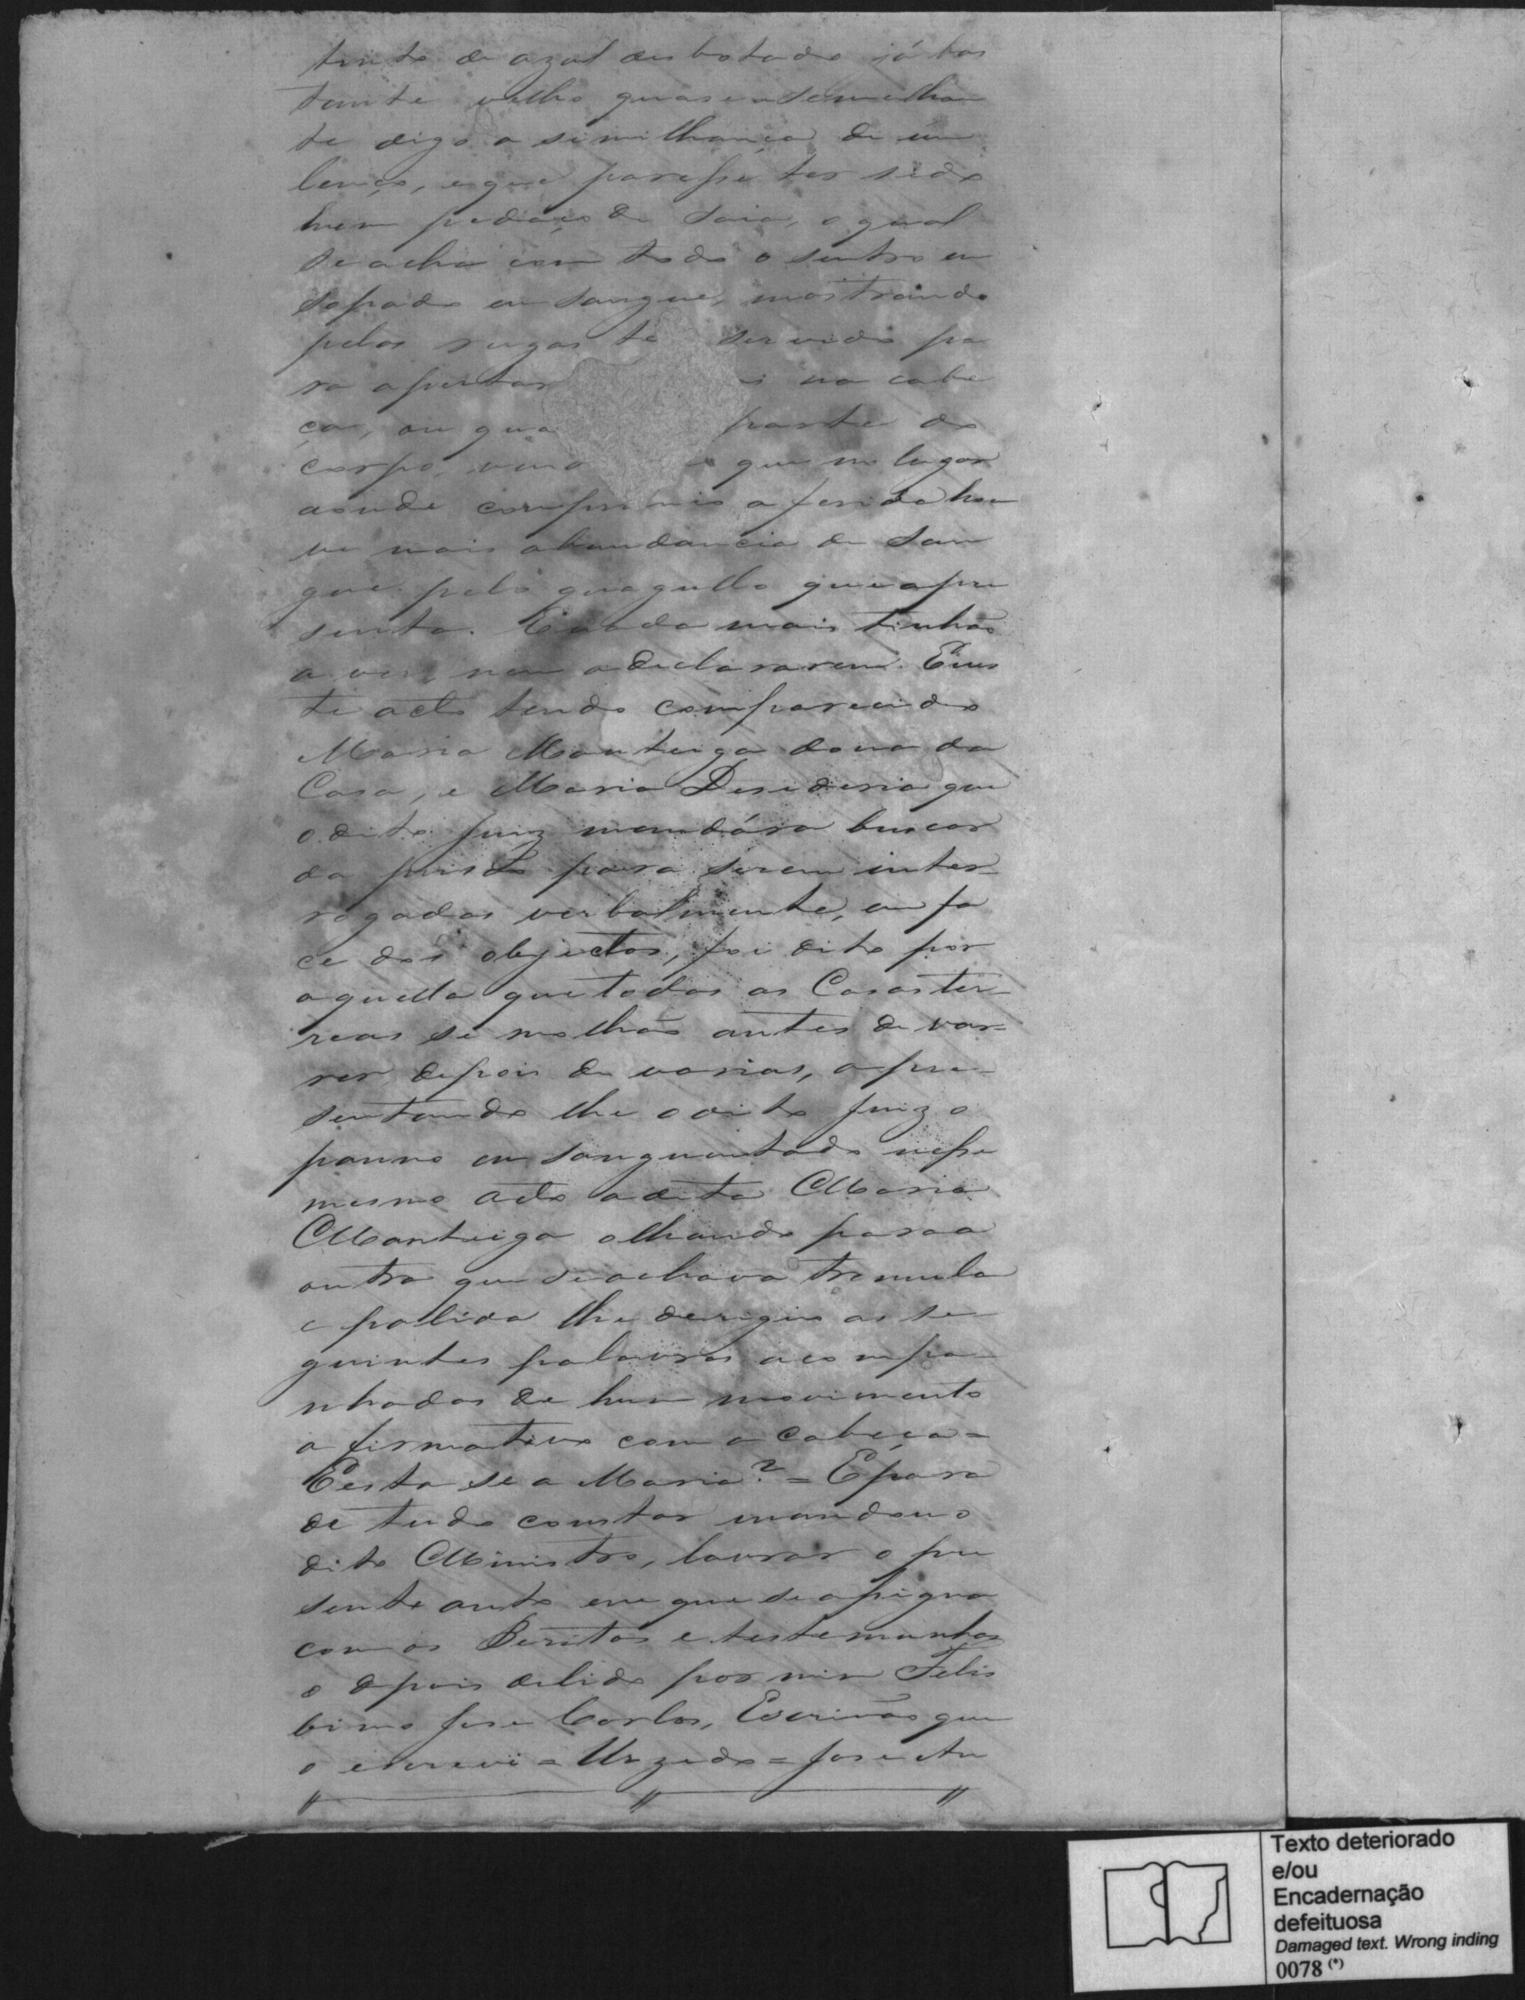 tinto de azul desbotado já bas
tante velho quase a semelhan
te digo a similhança de um
lenço, e que paresse ter sido
hum pedaço de saia, o qual
se acha com todo o sentro en
sopado em sangue, mostrando
pelas rugas te servido pa
ra apertar na cabe
ça, ou qua parte do
corpo, que no lugar
aonde comprimio a ferida hou
ve mais abundancia de san
gue pelo quagullo que apre
senta. E nada mais tinhão
a ver, nem a declararem. E nes
te acto tendo comparecido
Maria Manteiga dona da
Casa, e Maria Desideria que
o dito Juiz mandára buscar
da prisão para serem inter-
rogadas verbalmente, em fa
ce dos objectos, foi dito por
aquella que todas as Casas ter-
reas se molhão antes de var-
rer, depois de varias, apre-
sentando lhe o dito Juiz o
panno ensanguentado nesse
mesmo acto a dita Maria
Manteiga olhando para a
outra que se achava tremula
e palida lhe derigio as se
guintes palavras acompa
nhadas de hum movimento
afirmativo com a Cabeça=
E esta se a Maria? = E para
de tudo constar mandou o
dito Ministro, lavrar o pre
sente auto em que se assigna
com os Peritos e testemunhas
e depois de lido por mim Felis
bino Jose Carlos, Escrivão que
o escrevi = Urzedo = Jose An
Texto deteriorado
e/ou
Encadernação
defeituosa
Damaged text. Wrong inding
0078 (*)